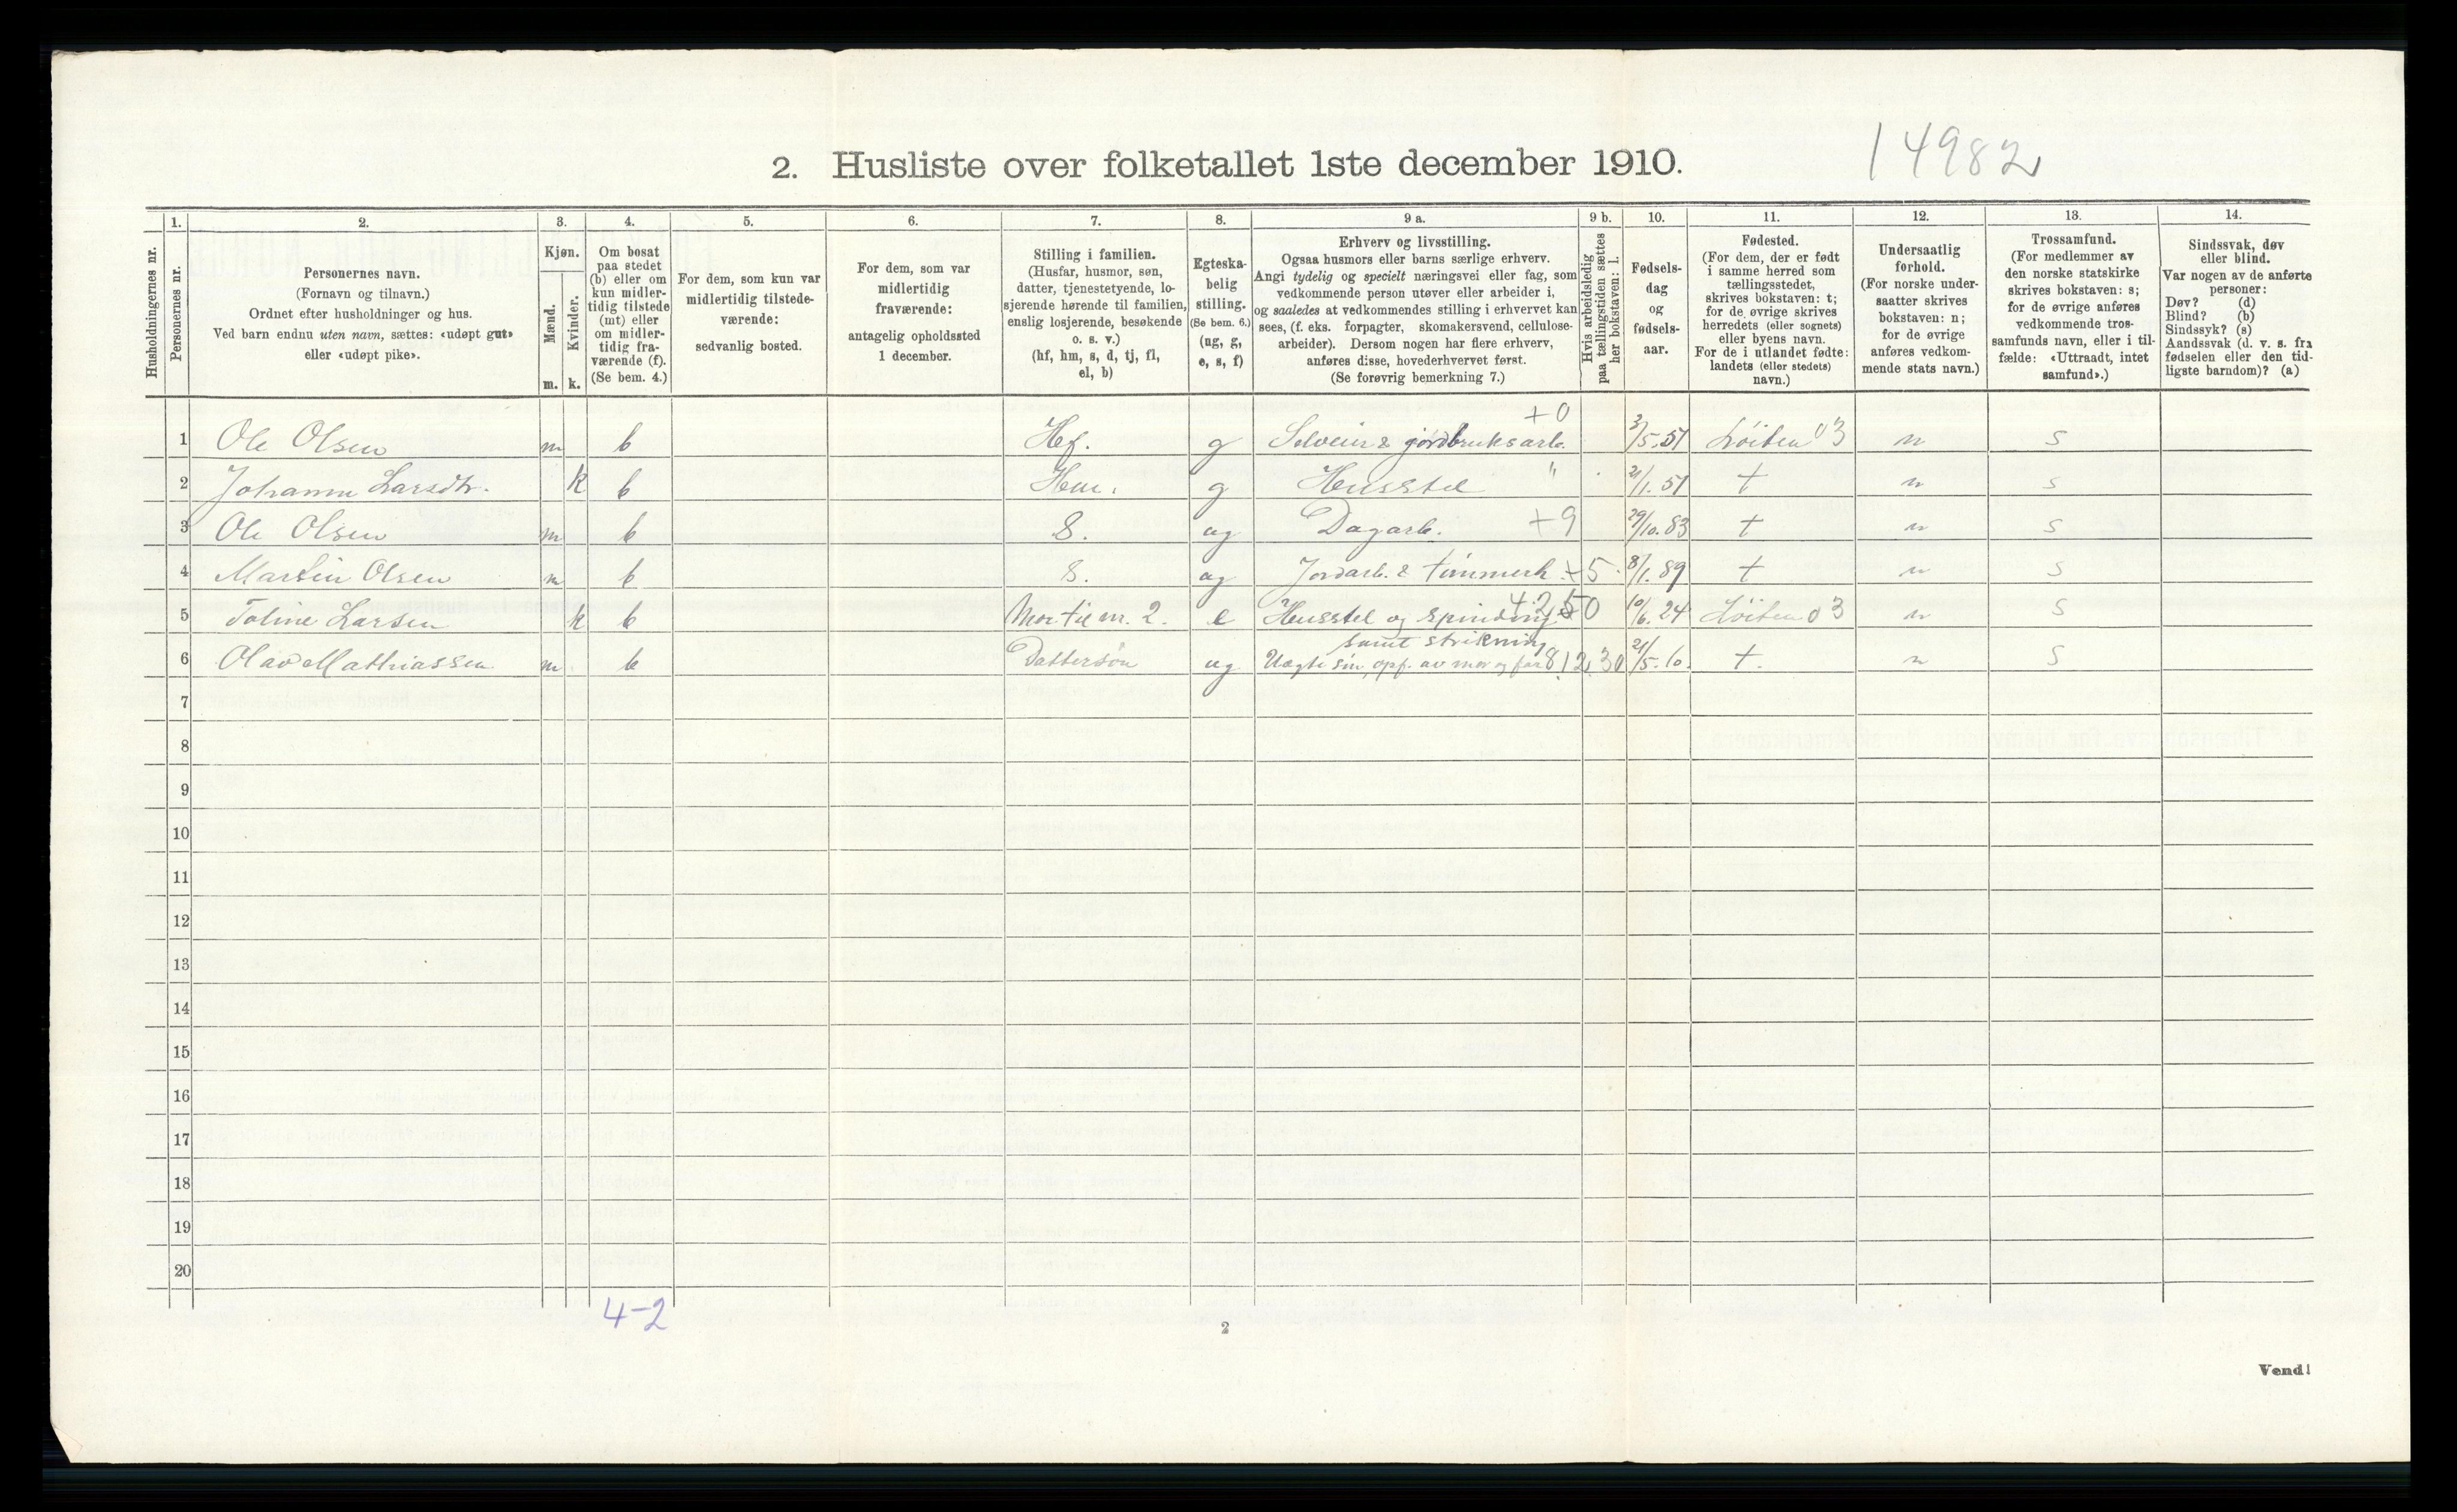 2. Husliste over folketallet 1ste december 1910.
14982
1.
2.
3.
4.
5.
6.
7.
8.
9 a.
9 b.
10.
11.
12.
13.
14.
Husholdningernes nr.
Personernes nr.
Personernes navn.
(Fornavn og tilnavn.)
Ordnet efter husholdninger og hus.
Ved barn endnu uten navn, sættes: «udøpt gut»
eller «udøpt pike».
Kjøn.
Mænd.
Kvinder.
m. k.
Om bosat
paa stedet
(b) eller om
kun midler-
tidig tilstede
(mt) eller
om midler-
tidig fra-
værende (f).
(Se bem. 4.)
For dem, som kun var
midlertidig tilstede-
værende:
sedvanlig bosted.
For dem, som var
midlertidig
fraværende:
antagelig opholdssted
1 december.
Stilling i familien.
(Husfar, husmor, søn,
datter, tjenestetyende, lo-
sjerende hørende til familien,
enslig losjerende, besøkende
o. s. v.)
(hf, hm, s, d, tj, fl,
el, b)
Egteska-
belig
stilling.
(Se bem. 6.)
(ug, g,
e, s, f)
Erhverv og livsstilling.
Ogsaa husmors eller barns særlige erhverv.
Angi tydelig og specielt næringsvei eller fag, som
vedkommende person utøver eller arbeider i,
og saaledes at vedkommendes stilling i erhvervet kan
sees, (f. eks. forpagter, skomakersvend, cellulose-
arbeider). Dersom nogen har flere erhverv,
anføres disse, hovederhvervet først.
(Se forøvrig bemerkning 7.)
Hvis arbeidsledig
paa tællingstiden sættes
her bokstaven: l.
Fødsels-
dag
og
fødsels-
aar.
Fødested.
(For dem, der er født
i samme herred som
tællingsstedet,
skrives bokstaven: t;
for de øvrige skrives
herredets (eller sognets)
eller byens navn.
For de i utlandet fødte:
landets (eller stedets)
navn.)
Undersaatlig
forhold.
(For norske under-
saatter skrives
bokstaven: n;
for de øvrige
anføres vedkom-
mende stats navn.)
Trossamfund.
(For medlemmer av
den norske statskirke
skrives bokstaven: s;
for de øvrige anføres
vedkommende tros-
samfunds navn, eller i til-
fælde: «Uttraadt, intet
samfund».)
Sindssvak, døv
eller blind.
Var nogen av de anførte
personer:
Døv? (d)
Blind? (b)
Sindssyk? (s)
Aandssvak (d. v. s. fra
fødselen eller den tid-
ligste barndom)? (a)
+0
1 Ole Olsen m b Hf. g Selveier & jordbruksarb. 3/5.57 Löiten 03 n s
2 Johanne Larsdtr. k b Hm. g Husstel " 21/1.57 t n s
3 Ole Olsen m b S. ug Dagarb. +9 29/10.83 t n s
4 Martin Olsen m b S. ug Jordarb. & tømmerh. +5 8/1.89 t n s
5 Toline Larsen k b Mor til nr. 2. e Husstel og spinding 10/6.24 Löiten 03 n s
samt strikning
6 Olav Mathiassen m b Dattersøn ug Uægte søn, opf. av mor og far 21/5.10. t. n s
7
8
9
10
11
12
13
14
15
16
17
18
19
20
4-2
2
Vend!